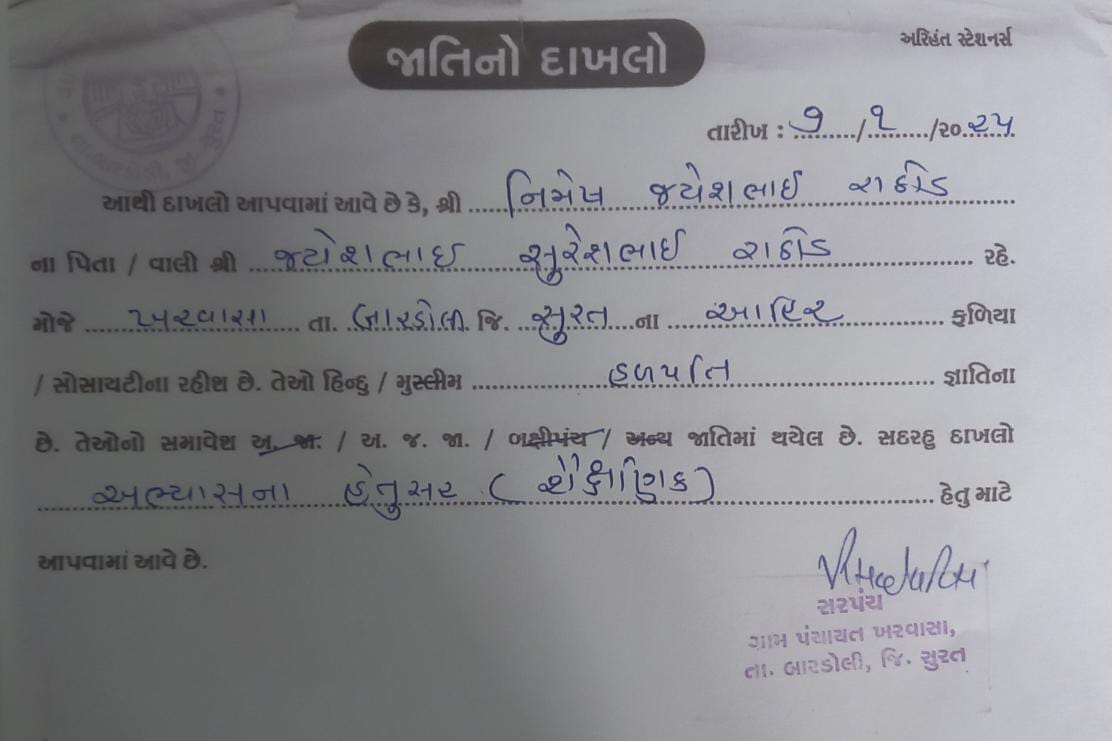 જાતિનો દાખલો
અરિહંત સ્ટેશનર્સ
તારીખ : ૭ / ૧ /૨૦ ૨૫
આથી દાખલો આપવામાં આવે છે કે, શ્રી નિમેષ જયેશભાઈ રાઠોડ
ના પિતા / વાલી શ્રી જયેશભાઈ સુરેશભાઈ રાઠોડ રહે.
મોજે ખરવાસા તા. બારડોલી જિ. સુરત ના આહિર ફળિયા
/ સોસાયટીના રહીશ છે. તેઓ હિન્દુ / મુસ્લીમ હળપતિ જ્ઞાતિના
છે. તેઓનો સમાવેશ અ. જા. / અ. જ. જા. / બક્ષીપંચ / અન્ય જાતિમાં થયેલ છે. સદરહુ દાખલો
અભ્યાસના હેતુસર ( શૈક્ષણિક ) હેતુ માટે
આપવામાં આવે છે.
સરપંચ
ગ્રામ પંચાયત ખરવાસા,
તા. બારડોલી, જિ. સુરત